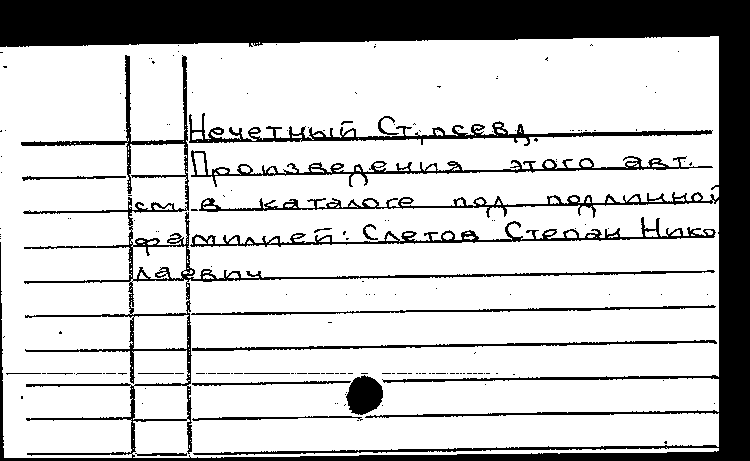 Нечетный Ст., псевд.
Произведения этого авт.
см. в каталоге под подлинной
фамилией: Слетов Степан Нико
лаевич